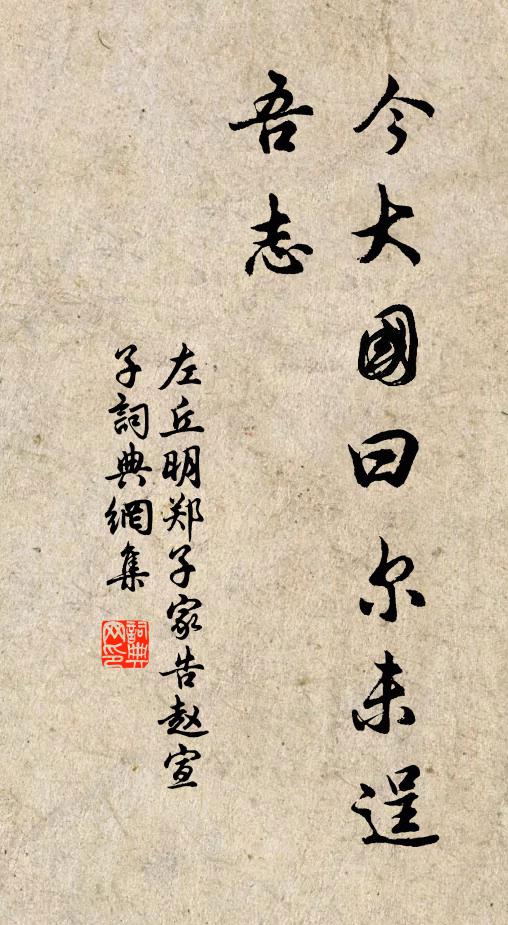 今大國曰尔未逞
吾志
左丘明郑子家告赵宣
子詞典網集
詞典
网印